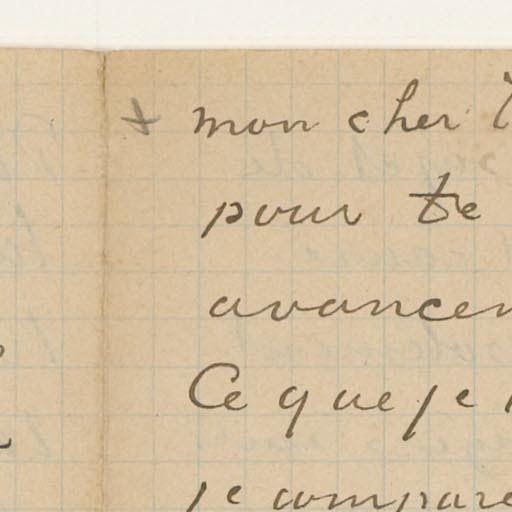 + mon cher
pour te
avancem
Ce que je
je compare